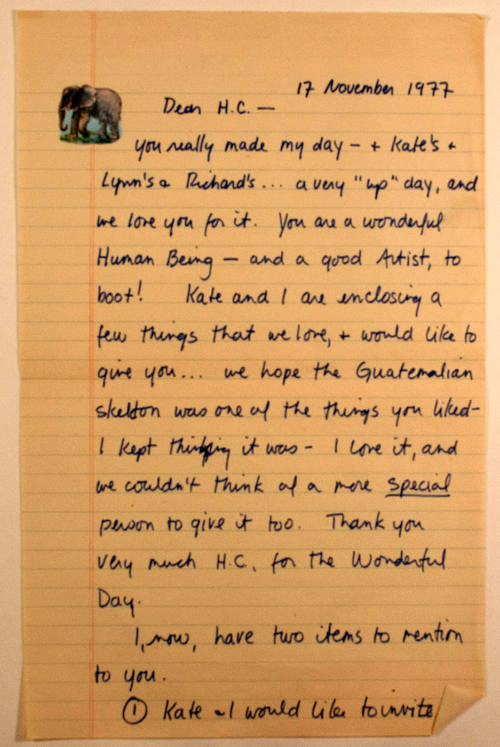 17 November 1977
Dear H.C. —
you really made my day – + Kate's +
Lynn's & Richard's... a very "up" day, and
we love you for it. You are a wonderful
Human Being — and a good Artist, to
boot! Kate and I are enclosing a
few things that we love, + would like to
give you... we hope the Guatemalian
skelton was one of the things you liked –
I kept thinking it was – I love it, and
we couldn't think of a more special
person to give it too. Thank you
very much H.C. for the Wonderful
Day.
I, now, have two items to mention
to you.
① Kate & I would like to invite